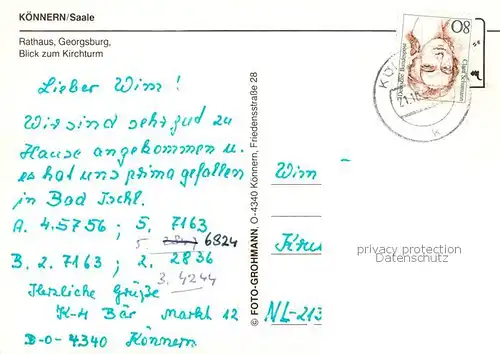 KÖNNERN/Saale
Rathaus, Georgsburg,
Blick zum Kirchturm
Lieber Wim!
Wir sind sehr gut zu
Hause angekommen u.
es hat uns prima gefallen
in Bad Ischl.
A. 4.5756 ; 5. 7163
5. 2847 6824
B. 2.7163 ; 2. 2836
3. 4244
Herzliche Grüße
K-H Bär Markt 12
D-O-4340 Könnern
© FOTO-GROHMANN, O-4340 Könnern, Friedensstraße 28
80
Deutsche Bundespost
Clara Schumann
KÖ
21.10
k
Wim
privacy protection
Datenschutz
NL-213